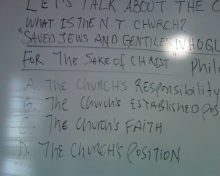 LET'S TALK ABOUT THE C
WHAT IS THE N.T. CHURCH?
"SAVED JEWS AND GENTILES" WHO
FOR THE SAKE OF CHRIST Phil
A. The CHURCH'S Responsibility
B. The Church's ESTABLISHED Pos
C. The Church's FAITH
D. The CHURCH'S POSITION